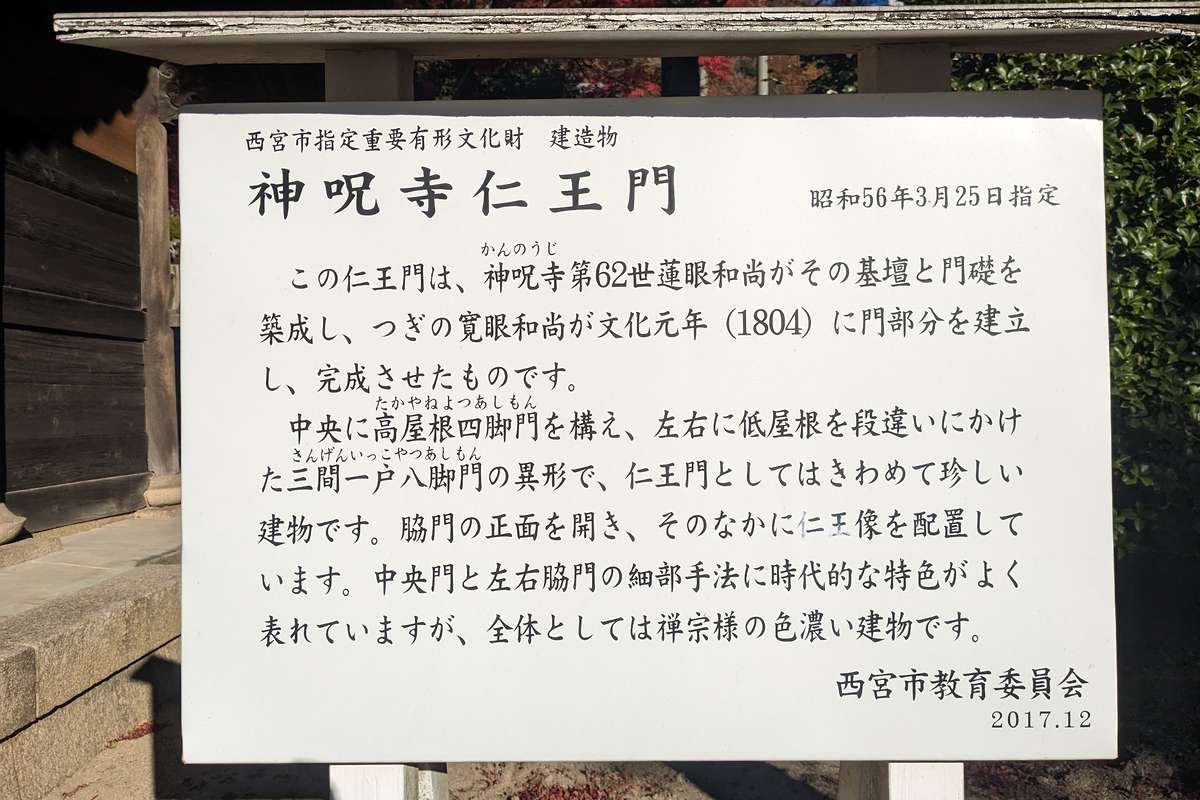 西宮市指定重要有形文化財　建造物
神呪寺仁王門
昭和56年3月25日指定
かんのうじ
この仁王門は、神呪寺第62世蓮眼和尚がその基壇と門礎を
築成し、つぎの寛眼和尚が文化元年（1804）に門部分を建立
し、完成させたものです。
たかやねよつあしもん
中央に高屋根四脚門を構え、左右に低屋根を段違いにかけ
さんげんいっこやつあしもん
た三間一戸八脚門の異形で、仁王門としてはきわめて珍しい
建物です。脇門の正面を開き、そのなかに仁王像を配置して
います。中央門と左右脇門の細部手法に時代的な特色がよく
表れていますが、全体としては禅宗様の色濃い建物です。
西宮市教育委員会
2017.12